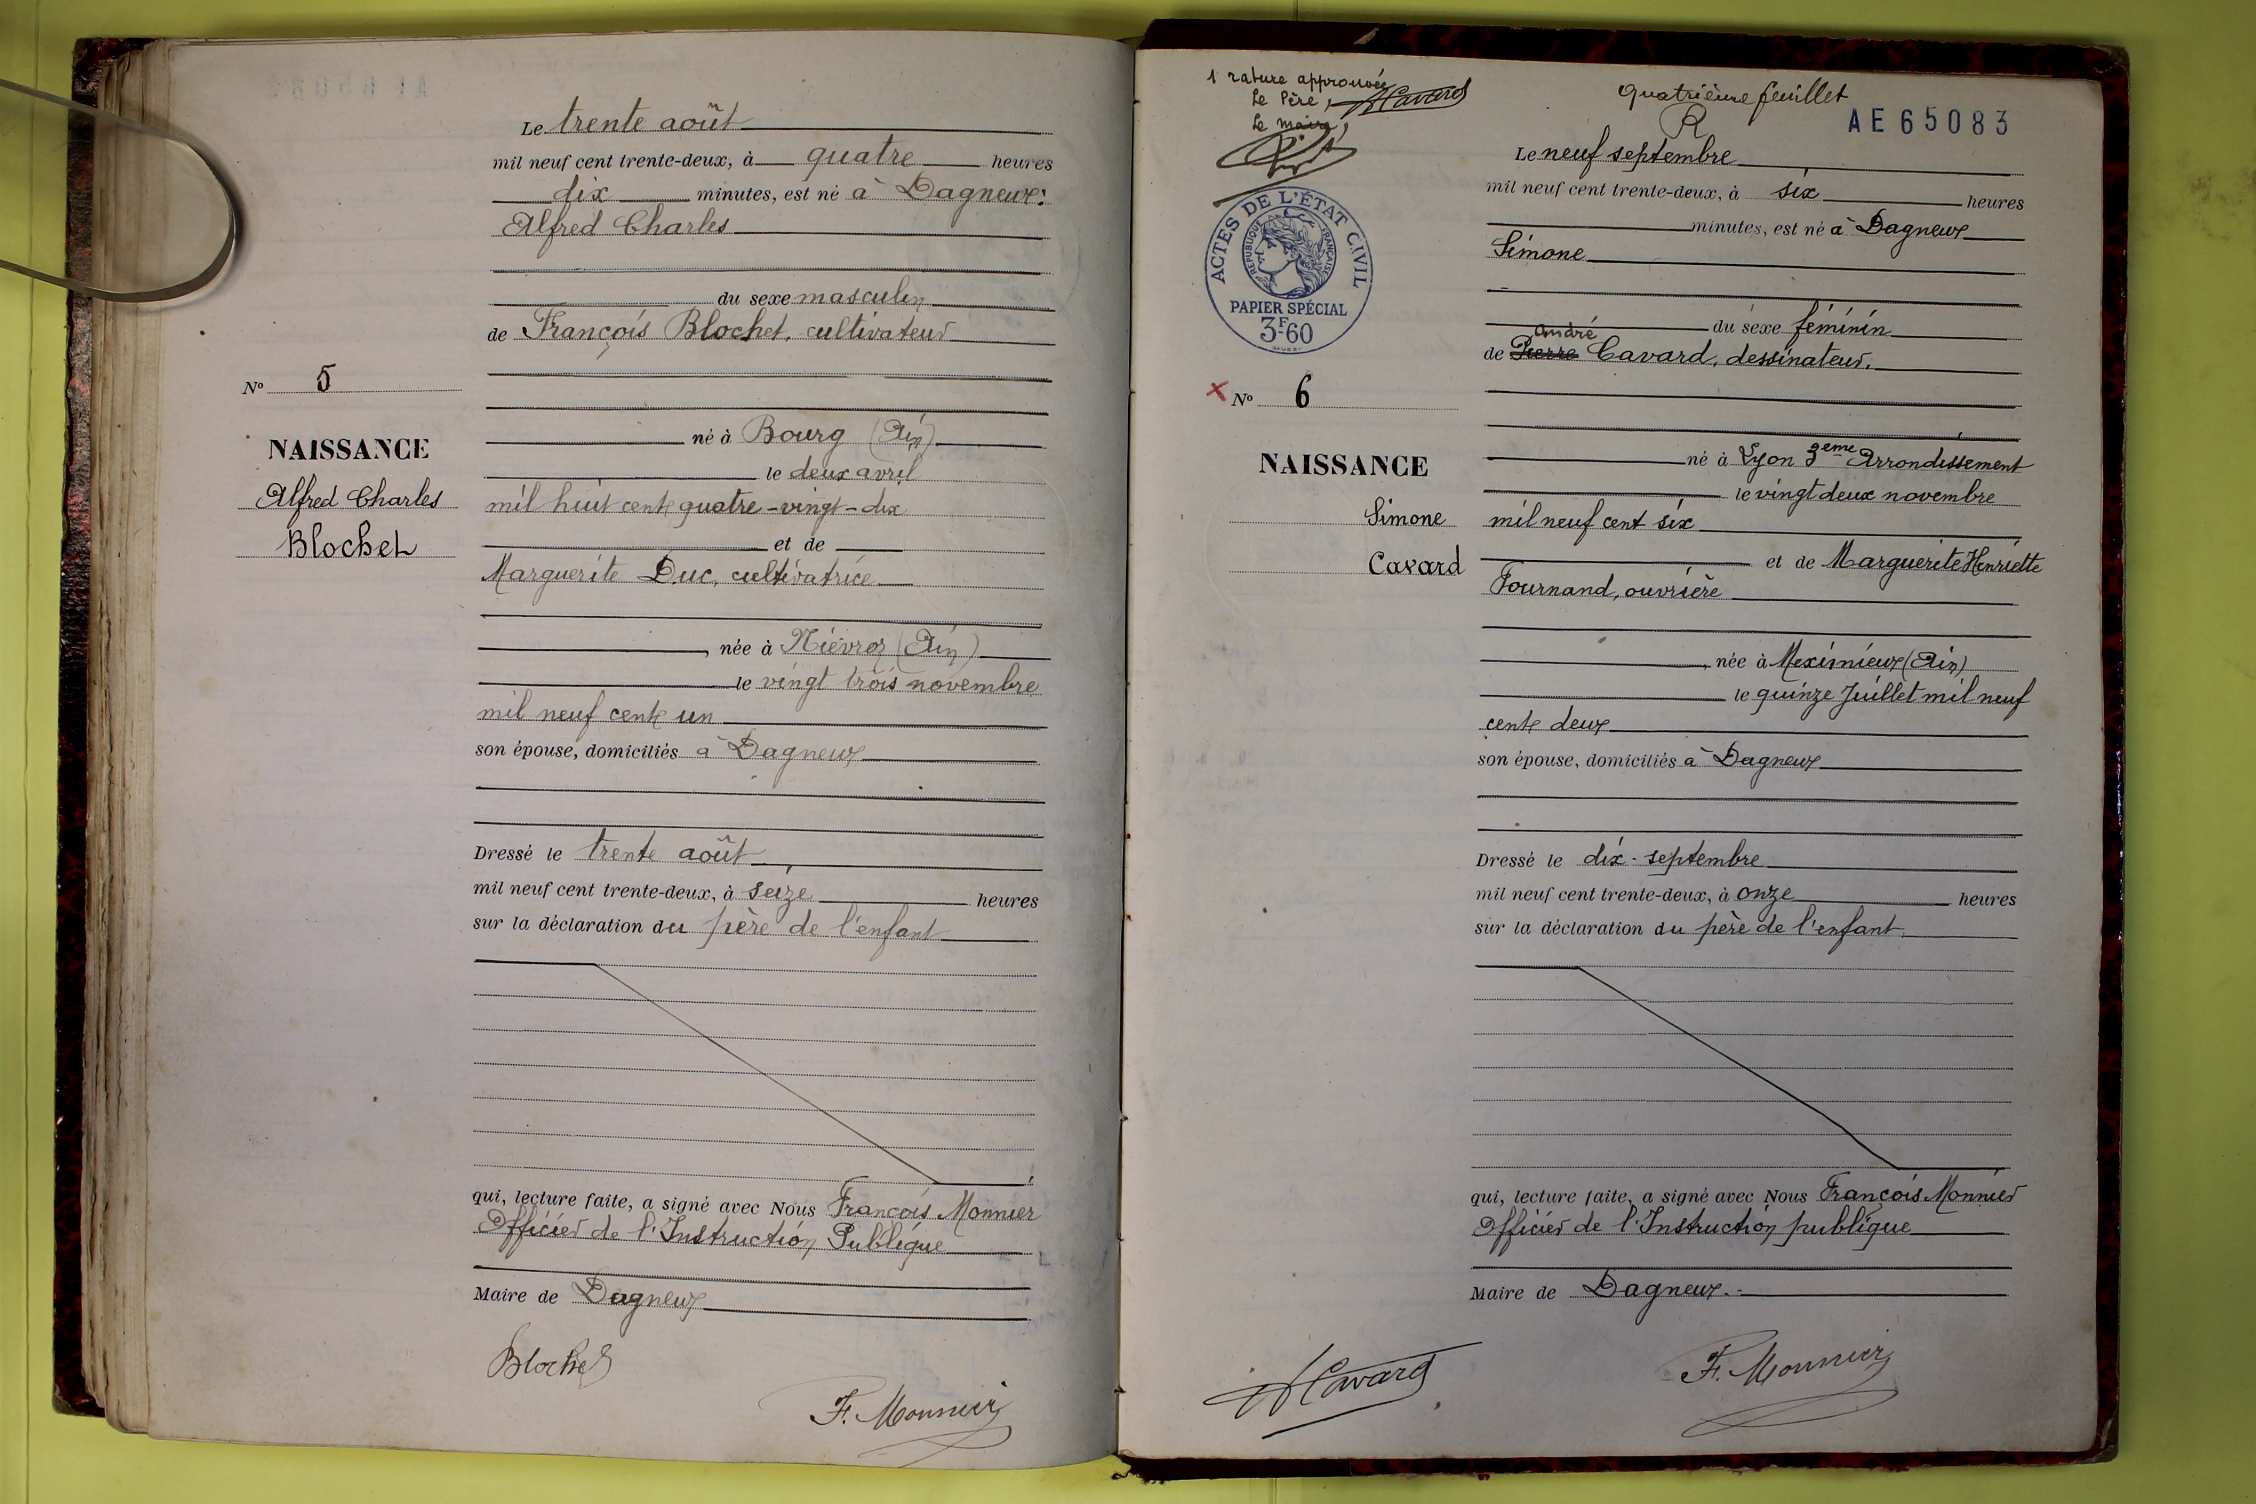 Le trente août
mil neuf cent trente-deux, à quatre heures
dix minutes, est né à Dagneux:
Alfred Charles
du sexe masculin
de François Blochet, cultivateur
né à Bourg (Ain)
le deux avril
mil huit cent quatre-vingt-dix
et de
Marguerite Duc, cultivatrice
née à Niévroz (Ain)
le vingt trois novembre
mil neuf cent un
son épouse, domiciliés à Dagneux
Dressé le trente août
mil neuf cent trente-deux, à seize heures
sur la déclaration du père de l'enfant
qui, lecture faite, a signé avec Nous François Monnier
Officier de l'Instruction Publique
Maire de Dagneux
Blochet
F. Monnier
No 5
NAISSANCE
Alfred Charles
Blochet
1 rature approuvée
Le Père, Cavard
Le maire,
ACTES DE L'ÉTAT CIVIL
RÉPUBLIQUE FRANÇAISE
PAPIER SPÉCIAL
3F60
x No 6
NAISSANCE
Simone
Cavard
Quatrième feuillet
R
AE65083
Le neuf septembre
mil neuf cent trente-deux, à six heures
minutes, est né à Dagneux
Simone
du sexe féminin
andré
de Pierre Cavard, dessinateur,
né à Lyon 3eme Arrondissement
le vingt deux novembre
mil neuf cent six
et de Marguerite Henriette
Fournand, ouvrière
née à Meximieux (Ain)
le quinze Juillet mil neuf
cent deux
son épouse, domiciliés à Dagneux
Dressé le dix septembre
mil neuf cent trente-deux, à onze heures
sur la déclaration du père de l'enfant
qui, lecture faite, a signé avec Nous François Monnier
Officier de l'Instruction publique
Maire de Dagneux.
Cavard
F. Monnier